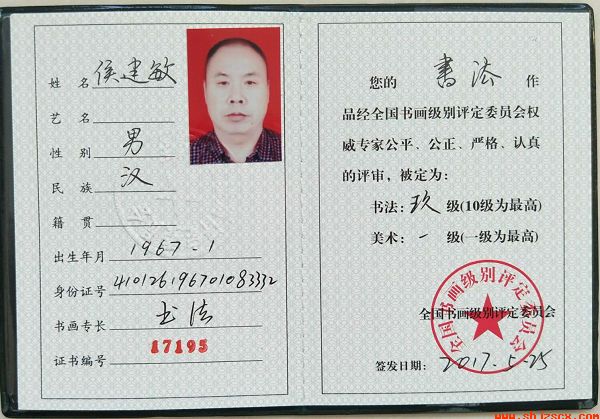 姓名 侯建敏
艺名
性别 男
民族 汉
籍贯
出生年月 1967.1
身份证号 410126196701083332
书画专长 书法
证书编号 17195
您的 書法 作
品经全国书画级别评定委员会权
威专家公平、公正、严格、认真
的评审，被定为：
书法：玖 级(10级为最高)
美术：一 级(一级为最高)
全国书画级别评定委员会
全国书画级别评定委员会
签发日期：2017.5.25
www.sbjzscx.com